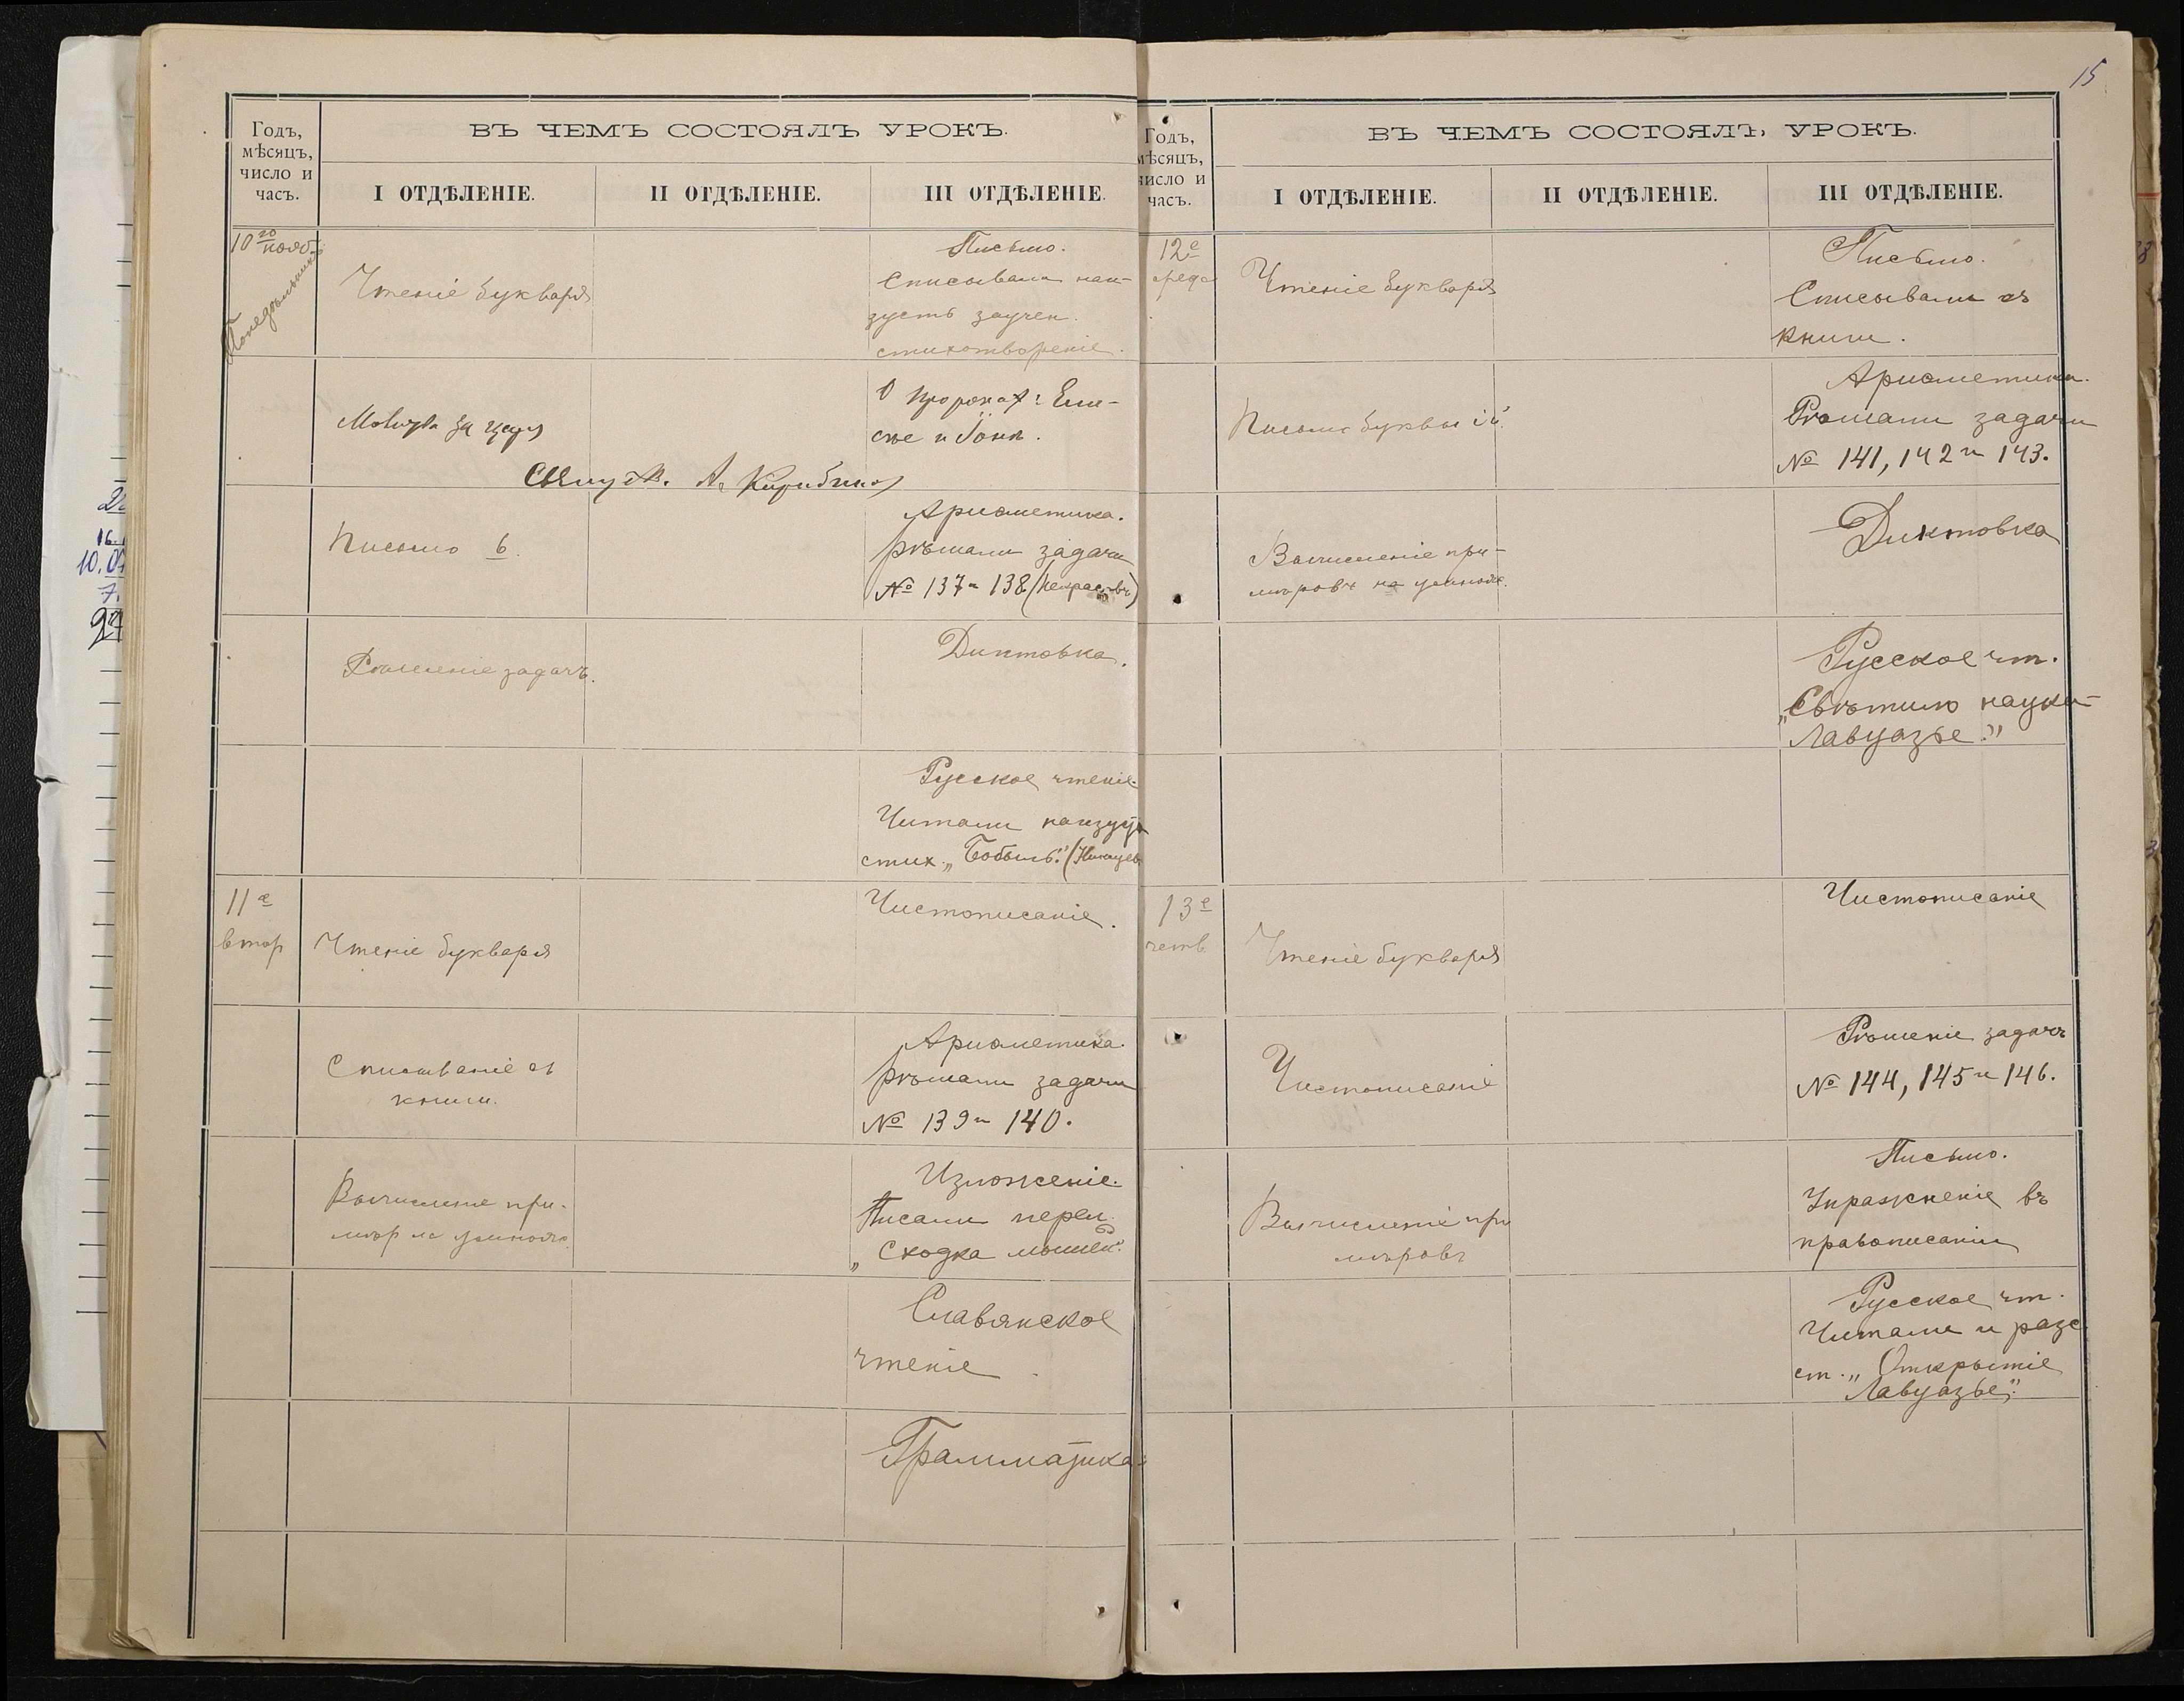 15
Годъ,
мѣсяцъ,
число и
часъ.
ВЪ ЧЕМЪ СОСТОЯЛЪ УРОКЪ.
I ОТДѢЛЕНІЕ.
II ОТДѢЛЕНІЕ.
III ОТДѢЛЕНІЕ.
10го нояб.
Понедѣльникъ
Чтеніе букваря
Письмо.
Списывали наи-
зусть заучен.
стихотвореніе.
Молитва за царя
О пророках: Ели-
сѣе и Іонѣ.
Свящ. А.
Письмо ь.
Ариѳметика.
рѣшали задачи
№ 137 и 138
Рѣшеніе задачъ.
Диктовка.
Русское чтеніе.
Читали наизусть
стих. „Бобыль."
11е
втор
Чтеніе букваря
Чистописаніе.
Списываніе съ
книги.
Ариѳметика.
рѣшали задачи
№ 139 и 140.
Вычисленіе при-
мѣр на умнож.
Изложеніе.
Писали перел.
„Сходка мышей".
Славянское
чтеніе
Грамматика
Годъ,
мѣсяцъ,
число и
часъ.
ВЪ ЧЕМЪ СОСТОЯЛЪ, УРОКЪ.
I ОТДѢЛЕНІЕ.
II ОТДѢЛЕНІЕ.
III ОТДѢЛЕНІЕ.
12е
среда
Чтеніе букваря
Письмо.
Списывали съ
книги.
Письмо буквы й.
Ариѳметика.
Рѣшали задачи
№ 141, 142 и 143.
Вычисленіе при-
мѣровъ на умнож.
Диктовка
Русское чт.
„Свѣтило науки-
Лавуазье."
13е
четв.
Чтеніе букваря
Чистописаніе
Чистописаніе
Рѣшеніе задачъ
№ 144, 145 и 146.
Вычисленіе при
мѣровъ
Письмо.
Упражненіе въ
правописаніи
Русское чт.
Читали и разс.
ст. „Открытіе
Лавуазье".